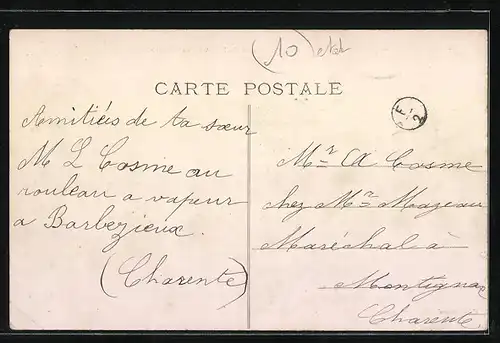 (10)
CARTE POSTALE
Amitiées de ta sœur
M L Cosme au
rouleau a vapeur
a Barbezieux.
(Charente)
Mr A Cosme
chez Mr Mazeau
Maréchal à
Montignac
Charente